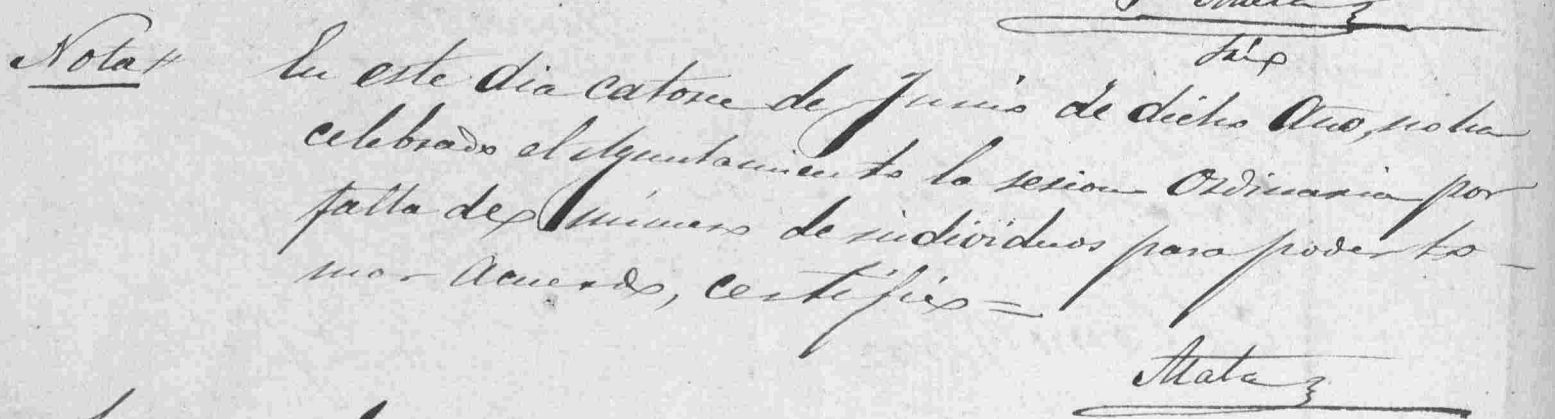 Nota// En este dia catorce de Junio de dicho Año, no ha
celebrado el Ayuntamiento la sesion Ordinaria por
falta de número de individuos para poder to-
mar acuerdo, certifico=
Mata